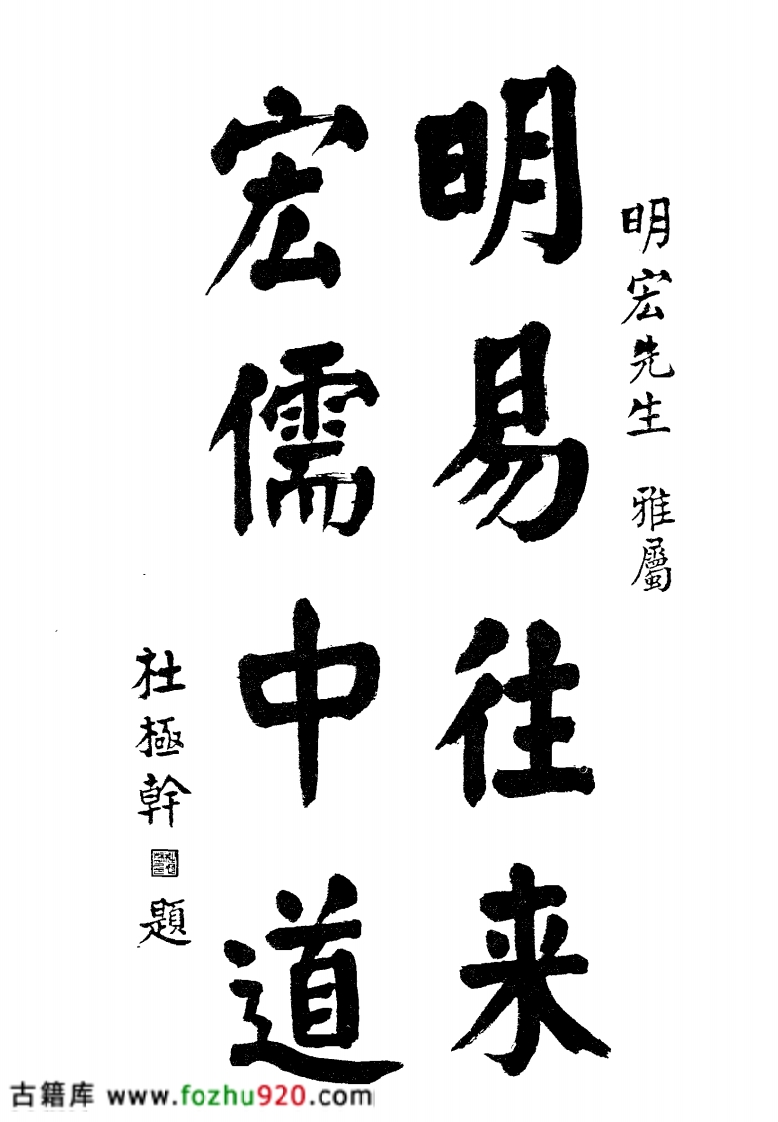 明宏先生 雅屬
明易往来
宏儒中道
杜極幹 題
古籍库 www.fozhu920.com